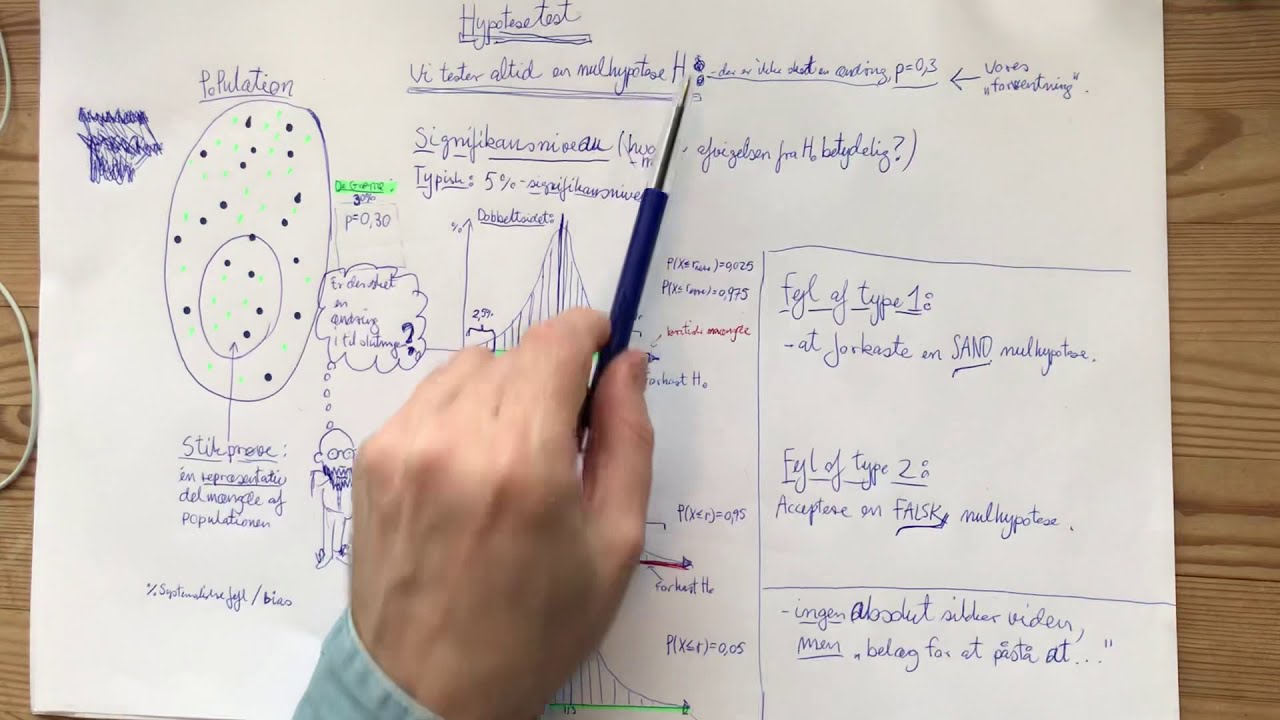 Hypotesetest
Vi tester altid en nulhypotese H
- der er ikke sket en ændring, p=0,3
← Vores
"forventning".
Population
Signifikansniveau (
afvigelsen fra H₀ betydelig?)
Typisk: 5%-signifikansnive
De Grønne:
30%
p=0,30
Er der sket
en
ændring
i tilslutningen
?
%
Dobbeltsidet:
2,5%
P(X≤r
)=0,025
P(X≤r
)=0,975
kritiske mængde
forkast H₀
Stikprøve:
én repræsentativ
delmængde af
populationen
% Systematiske fejl / bias
P(X≤r)=0,95
forkast H₀
P(X≤r)=0,05
Fejl af type 1:
- at forkaste en SAND nulhypotese.
Fejl af type 2:
Acceptere en FALSK nulhypotese.
- ingen absolut sikker viden,
men "belæg for at påstå at..."